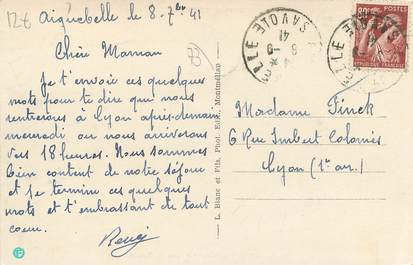 126
Aiguebelle le 8-7bre 41
73
Chère Maman
Je t'envoie ces quelques
mots pour te dire que nous
rentrerons à Lyon après-demain
mercredi ou nous arriverons
vers 18 heures. Nous sommes
bien content de notre séjour
et je termine ces quelques
mots et t'embrassant de tout
coeur.
L. Blanc et Fils, Phot. Edit., Montmélian
SAVOIE
41
POSTES
REPUBLIQUE FRANÇAISE
SAVOIE
Madame Finck
6 Rue Imbert Colomès
Lyon (1er arr.)